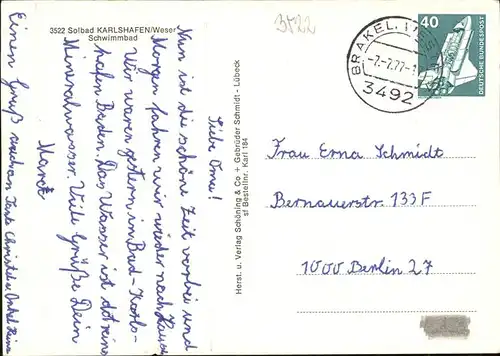 3522 Solbad KARLSHAFEN/Weser
Schwimmbad
3522
Liebe Omu!
Nun ist die schöne Zeit vorbei und
Morgen fahren wir wieder nach Hause
Wir waren gestern in Bad-Karls-
hafen Baden. Das Wasser ist dort reins
Mineralwasser. Viele Grüße Dein
Marct
Einen Gruß
Tante Christel u. Onkel Heinz
Herst. u. Verlag Schöning & Co + Gebrüder Schmidt - Lübeck
sf Bestellnr. Karl 184
BRAKEL
-7.-7.77-
3492
40
DEUTSCHE BUNDESPOST
Frau Erna Schmidt
Bernauerstr. 133F
1000 Berlin 27